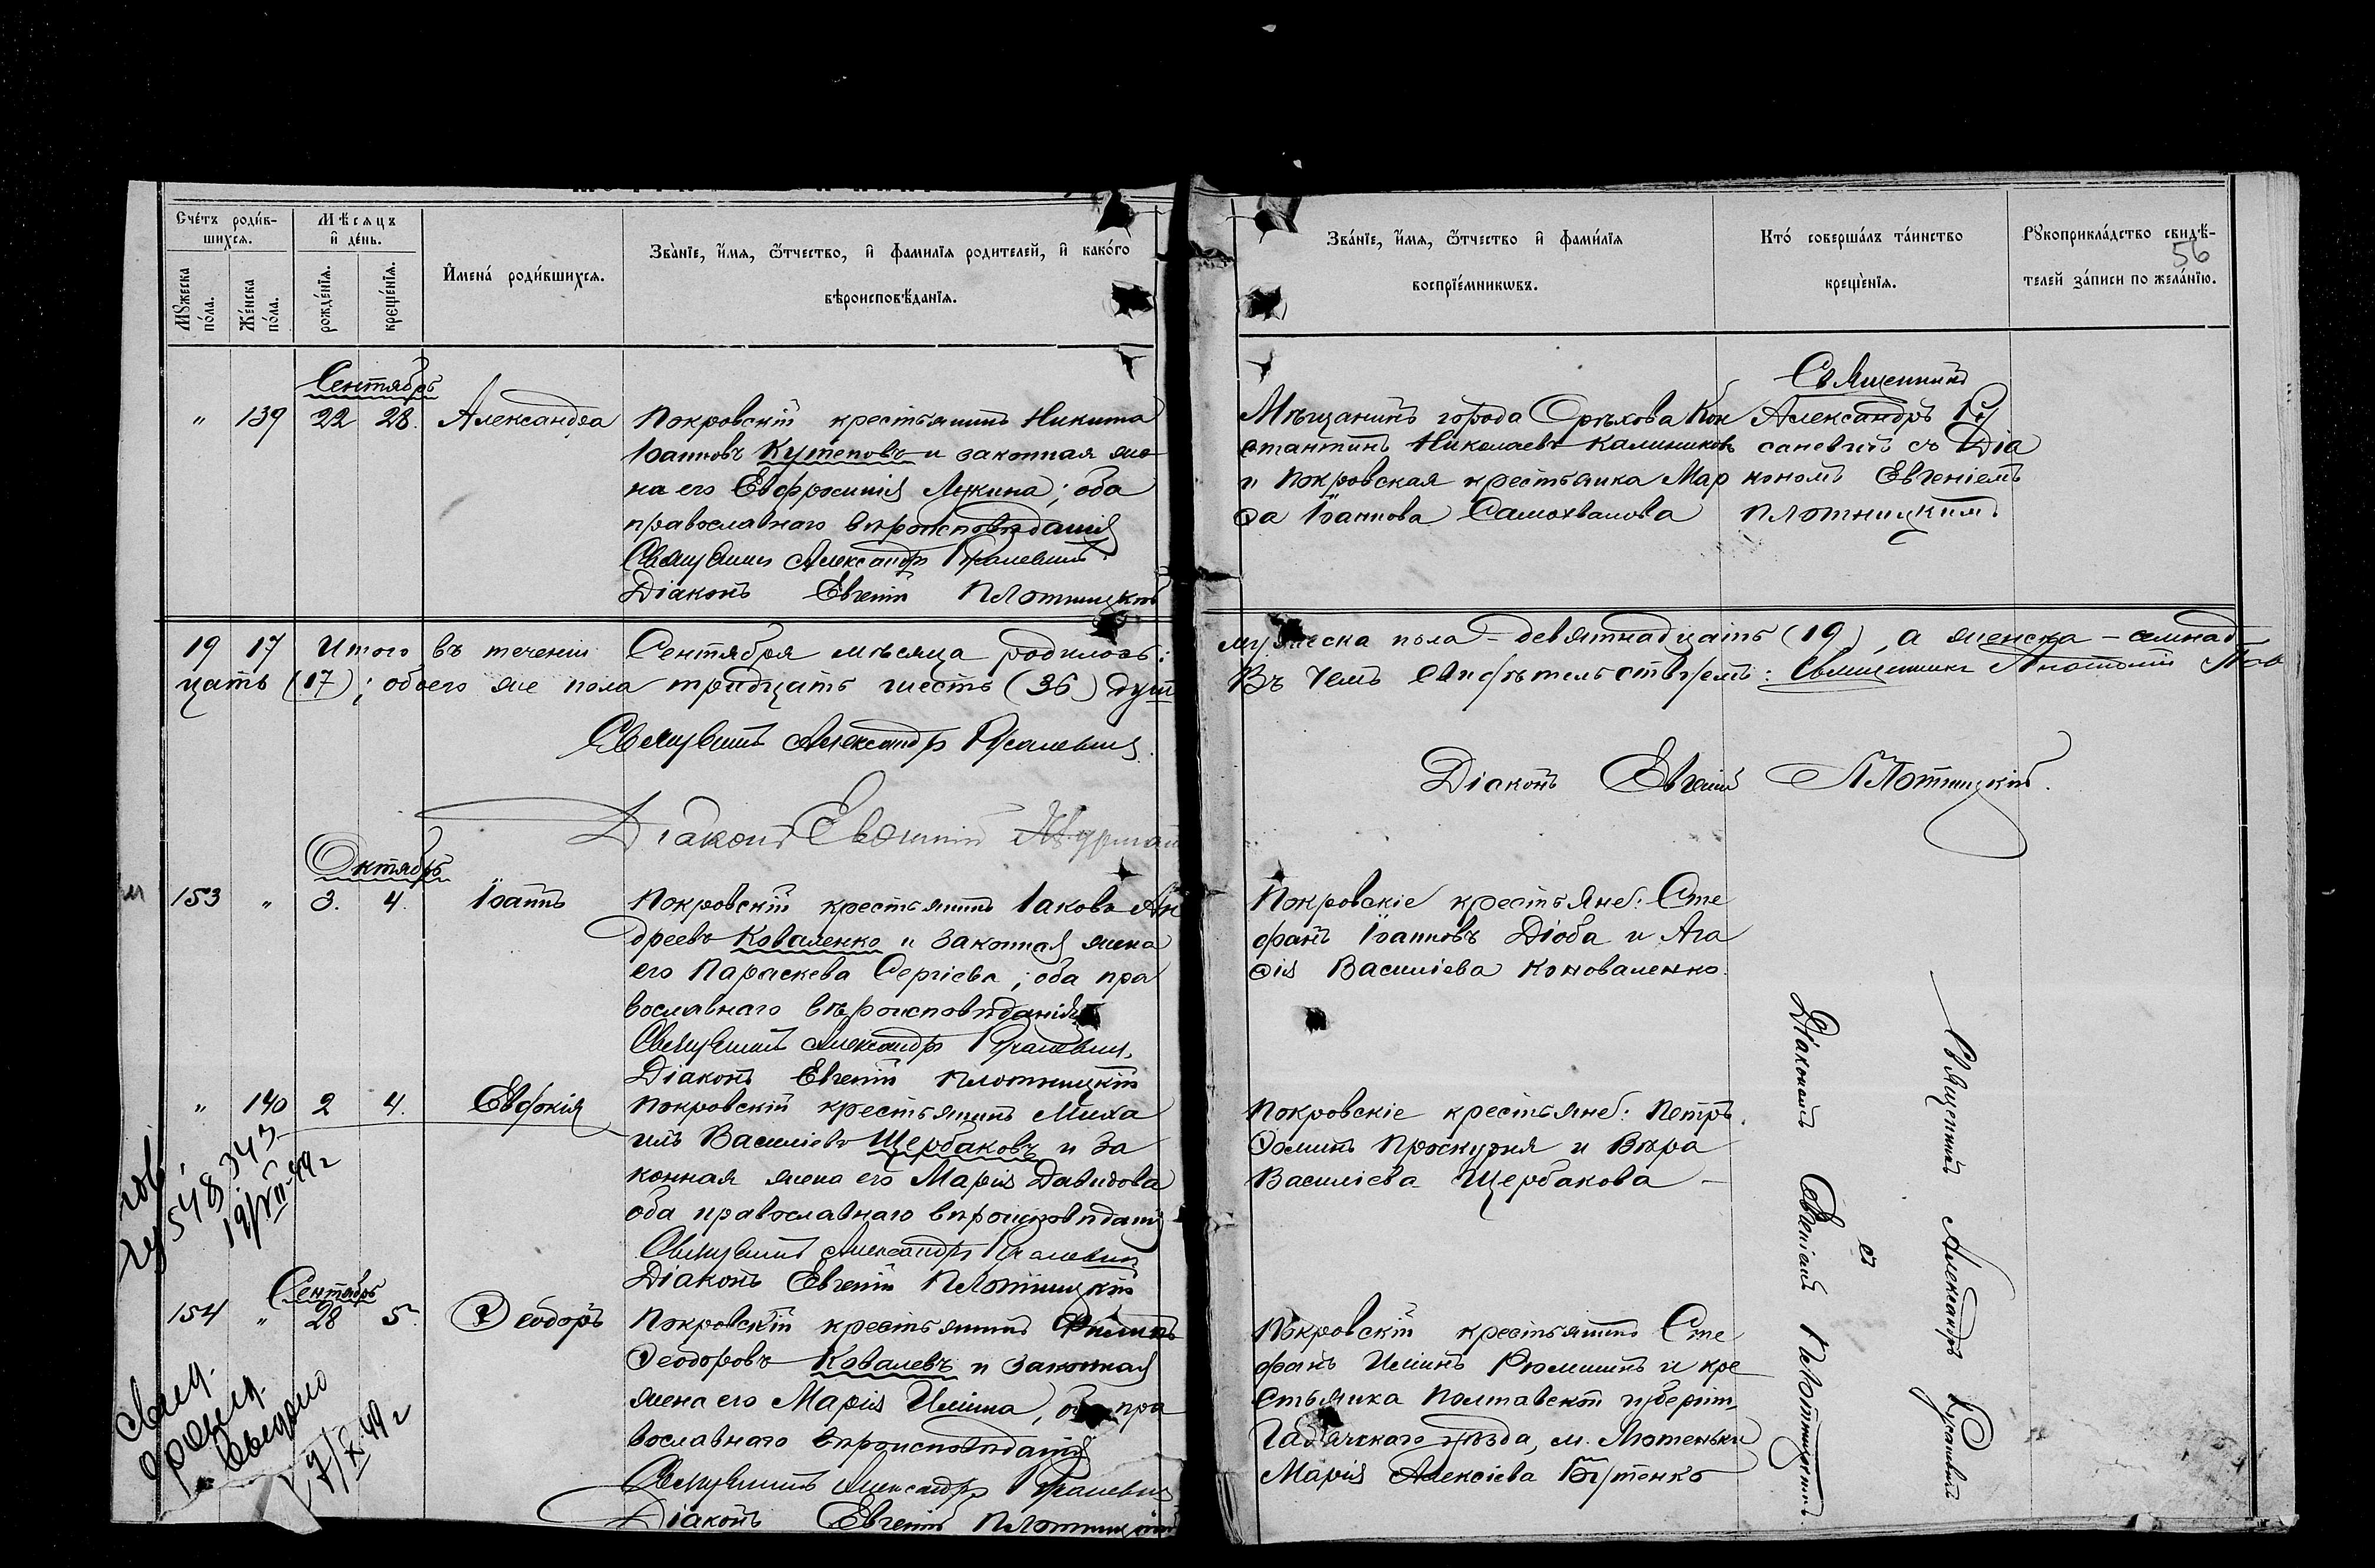 Счетъ родив-
шихся.
Мѣсяцъ
и день.
Мужеска
пола.
Женска
пола.
рожденія.
крещенія.
Имена родившихся.
Званіе, имя, отчество, и фамилія родителей, и какого
вѣроисповѣданія.
Званіе, имя, отчество и фамилія
воспріемниковъ.
Кто совершалъ таинство
крещенія.
Рукоприкладство свидѣ-
телей записи по желанію.
56
Сентябрь
" 139 22 28. Александра
Покровскій крестьянинъ Никита
Іоанновъ Кутеповъ и законная же
на его Евфросинія Лукина; оба
православнаго вѣроисповѣданія
Священникъ Александръ Русаневичъ
Діаконъ Евгеній Плотницкій
Мѣщанинъ города Орѣхова Кон
стантинъ Николаевъ Калинниковъ
и Покровская крестьянка Мар
ѳа Іоаннова Самохвалова
Священникъ
Александръ Ру
саневичъ съ Діа
кономъ Евгеніемъ
Плотницкимъ.
19 17 Итого въ теченіи Сентября мѣсяца родилось: мужеска пола - девятнадцать (19), а женска - семнад
цать (17); обоего же пола тридцать шесть (36) душ
Въ чемъ свидѣтельствуемъ: Священникъ Анатолій
Священникъ Александръ Русаневичъ.
Діаконъ Евгеній Плотницкій.
Діаконъ Евѳимій
Октябрь
153 " 3. 4. Іоаннъ
Покровскій крестьянинъ Іаковъ Ан
дреевъ Коваленко и законная жена
его Параскева Сергіева; оба пра
вославнаго вѣроисповѣданія
Священникъ Александръ Русаневичъ.
Діаконъ Евгеній Плотницкій
Покровскіе крестьяне: Сте
фанъ Іоанновъ Діоба и Ага
ѳія Василіева Коноваленко.
" 140 2 4. Евдокія
Покровскій крестьянинъ Миха
илъ Василіевъ Щербаковъ и за
конная жена его Марія Давидова
оба православнаго вѣроисповѣданія
Священникъ Александръ Русаневичъ
Діаконъ Евгеній Плотницкій
Покровскіе крестьяне: Петръ
Ѳоминъ Проскурня и Вѣра
Василіева Щербакова -
548343
19/VII-49 г
Сентябрь
154 " 28 5. Ѳеодоръ
Покровскій крестьянинъ Филипъ
Ѳеодоровъ Ковалевъ и законная
жена его Марія Иліина, оба пра
вославнаго вѣроисповѣданія
Священникъ Александръ Русаневичъ
Діаконъ Евгеній Плотницкій
Покровскій крестьянинъ Сте
фанъ Иліинъ Рюминъ и кре
стьянка Полтавской губерніи,
Гадячского уѣзда, м. Лютеньки
Марія Алексіева Бутенко
Священникъ Александръ Русаневичъ
съ
Діакономъ Евгеніемъ Плотницкимъ.
выдано
7/X 49 г